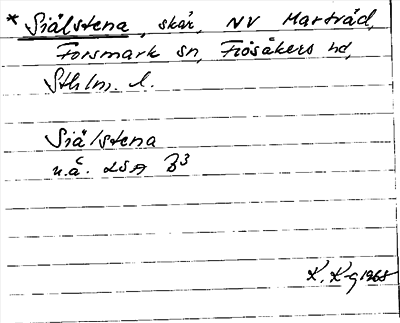 * Själstena, skär, NV Martråd,
Forsmark sn, Frösåkers hd,
Sthlm. l.
Själstena
u.å. LSA B3
K. K-g 1965